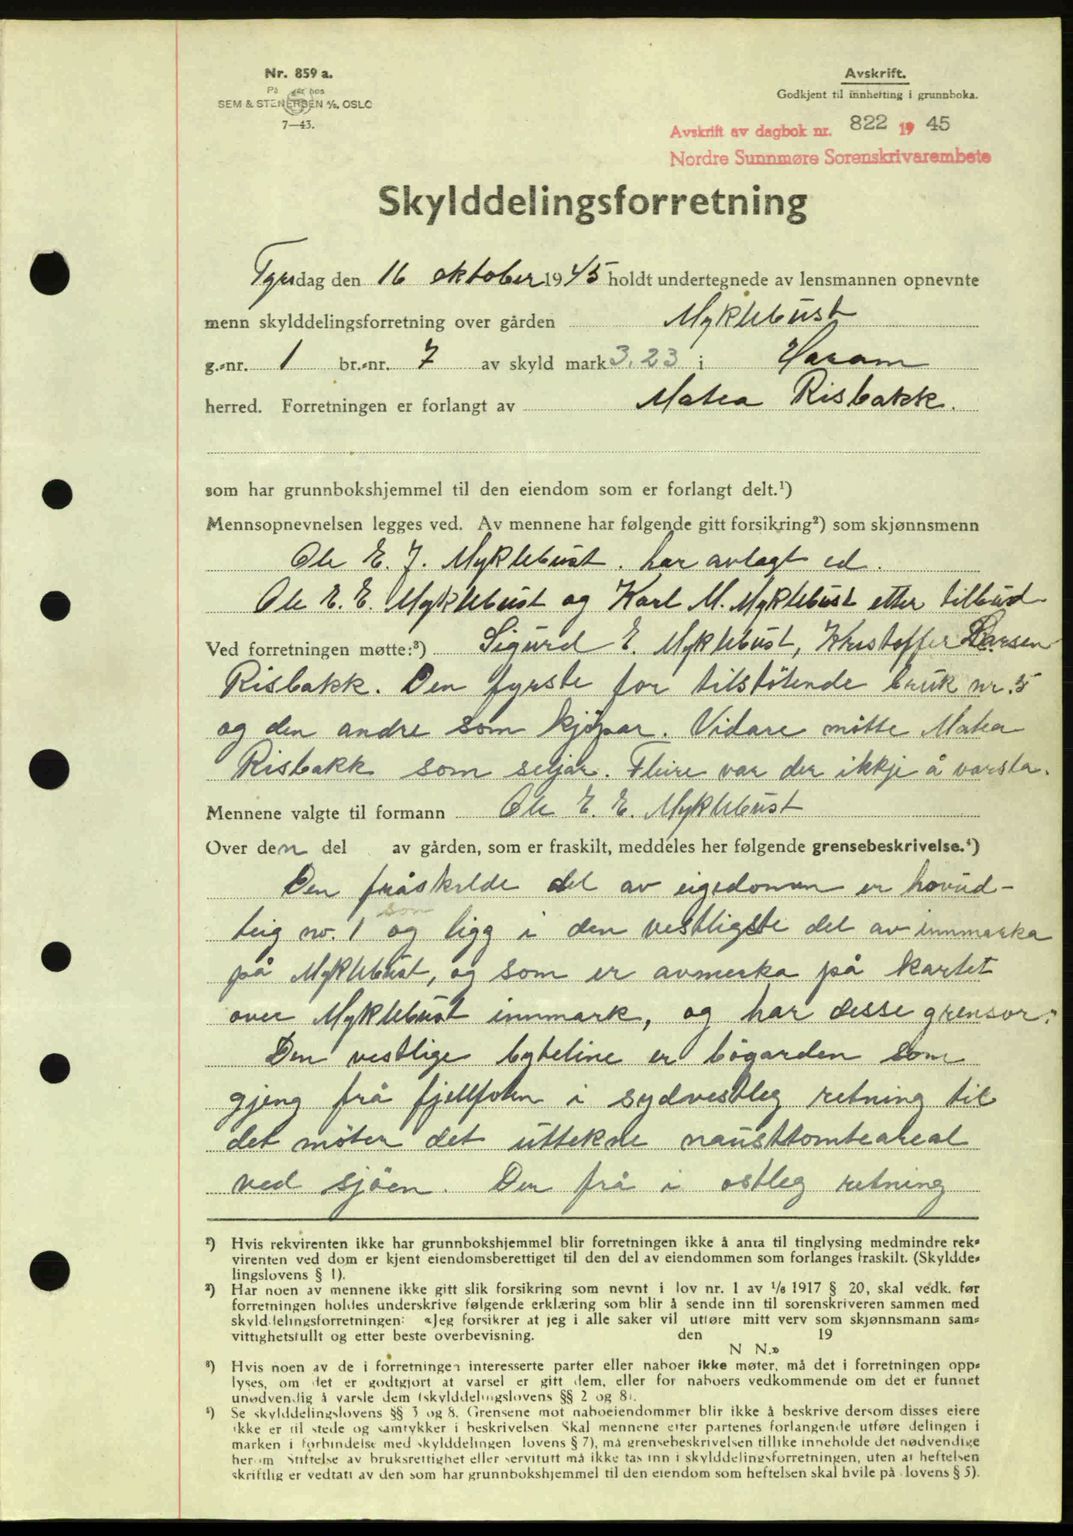 Nr. 859 a.
På
SEM & STENERSEN A/S, OSLO
7—43.
Avskrift.
Godkjent til innhefting i grunnboka.
Avskrift av dagbok nr. 822 1945
Nordre Sunnmøre Sorenskrivarembete
Skylddelingsforretning
Tysdag den 16 oktober 1945 holdt undertegnede av lensmannen opnevnte
menn skylddelingsforretning over gården Myklebust
g.-nr. 1 br.-nr. 7 av skyld mark 3,23 i Haram
herred. Forretningen er forlangt av Matea Risbakk.
som har grunnbokshjemmel til den eiendom som er forlangt delt.¹)
Mennsopnevnelsen legges ved. Av mennene har følgende gitt forsikring²) som skjønnsmenn
Ole E. J. Myklebust. har avlagt ed.
Ole E. E. Myklebust og Karl M. Myklebust etter tilbud
Ved forretningen møtte:³) Sigurd E. Myklebust, Khristoffer Larsen
Risbakk. Den fyrste for tilstötende bruk nr. 5
og den andre som kjöpar. Vidare mötte Matea
Risbakk som seljar. Fleire var der ikkje å varsla.
Mennene valgte til formann Ole E. E. Myklebust
Over den del av gården, som er fraskilt, meddeles her følgende grensebeskrivelse.⁴)
Den fråskilde del av eigedomen er hovud-
teig no. 1 og som ligg i den vestligste del av innmarka
på Myklebust, og som er avmerka på kartet
over Myklebust innmark, og har desse grensor:
Den vestlige byteline er bögarden som
gjeng frå fjellfoten i sydvestleg retning til
det möter det uttekne nausttomteareal
ved sjöen. Der frå i ostleg retning
¹) Hvis rekvirenten ikke har grunnbokshjemmel blir forretningen ikke å anta til tinglysing medmindre rek-
virenten ved dom er kjent eiendomsberettiget til den del av eiendommen som forlanges fraskilt. (Skyldde-
lingslovens § 1).
²) Har noen av mennene ikke gitt slik forsikring som nevnt i lov nr. 1 av 1/8 1917 § 20, skal vedk. før
forretningen holdes underskrive følgende erklæring som blir å sende inn til sorenskriveren sammen med
skylddelingsforretningen: «Jeg forsikrer at jeg i alle saker vil utføre mitt verv som skjønnsmann sam-
vittighetsfullt og etter beste overbevisning. den 19
N N.»
³) Hvis noen av de i forretningen interesserte parter eller naboer ikke møter, må det i forretningen opp-
lyses, om det er godtgjort at varsel er gitt dem, eller for naboers vedkommende om det er funnet
unødvendig å varsle dem (skylddelingslovens §§ 2 og 8).
⁴) Se skylddelingslovens §§ 3 og 8. Grensene mot naboeiendommer blir ikke å beskrive dersom disses eiere
ikke er til stede og samtykker i beskrivelsen Skal mennene etter partenes forlangende utføre delingen i
marken i forbindelse med skylddelingen lovens § 7), må grensebeskrivelsen tillike inneholde det nødvendige
herom Stiftelse av bruksrettighet eller servitutt må ikke tas inn i skylddelingsforretningen, uten at heftelsen
skriftlig er vedtatt av den som har grunnbokshjemmel til den eiendom som heftelsen skal hvile på lovens § 5).